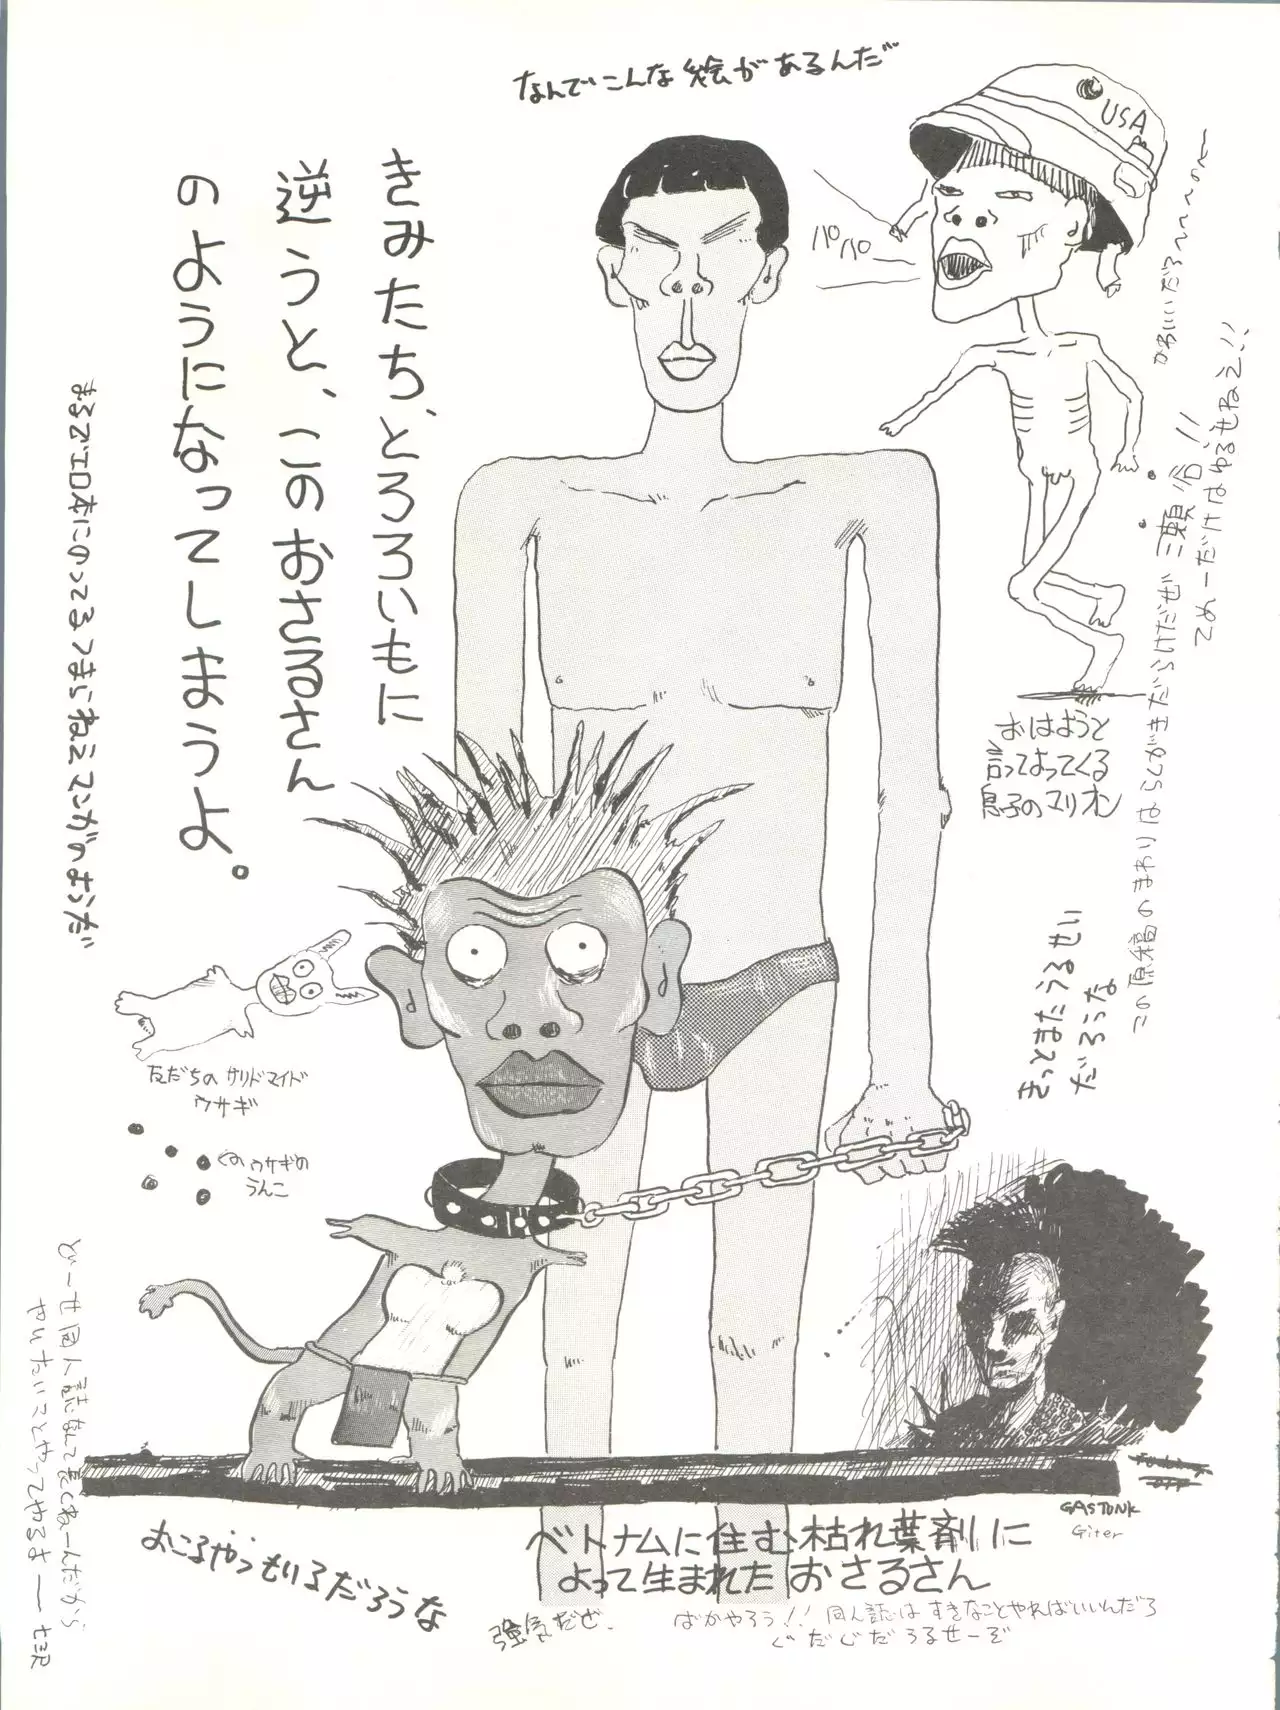 なんでこんな絵があるんだ
USA
パパパ
かわいいだろ〜〜〜〜
きみたち、とろろいもに
逆うと、このおさるさん
のようになってしまうよ。
まるでエロ本にのってるつまらねえマンガのようだ
てめーだけはゆるせねえ!!
この原稿のまわりはらくがきだらけだぜ
おはようと
言ってよってくる
息子のマリオン
きっとまたうるせい
だろうな
友だちのサリドマイド
ウサギ
ウサギの
うんこ
GASTUNK
Giter
ベトナムに住む枯れ葉剤に
よって生まれたおさるさん
おこるやつもいるだろうな
強気だぜ。
ばかやろう!! 同人誌はすきなことやればいいんだろ
ぐだぐだうるせーぞ
どーせ同人誌なんて
やりたいことやってやるさ